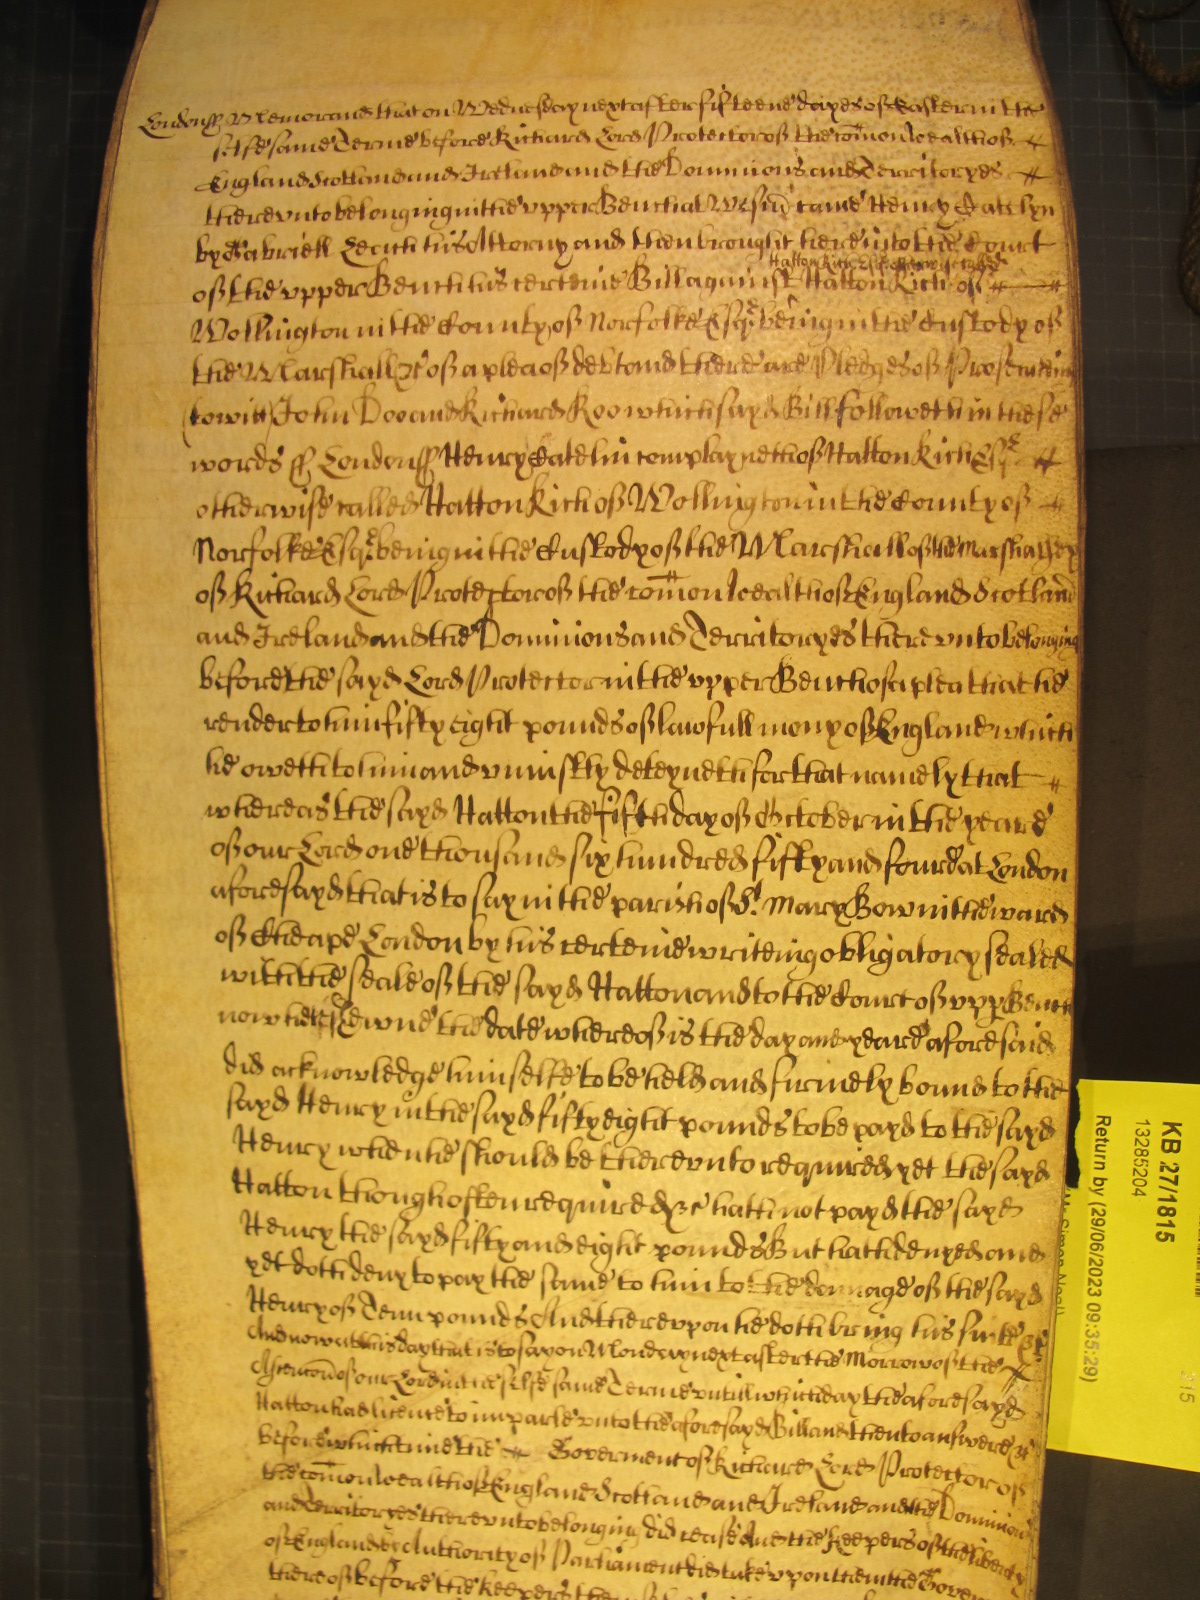 London ss Memorand that on Wednesday next after fifteene dayes of Easter in the
selfe same Terme before Richard Lord Protector of the comon wealth of
England Scotland and Ireland and the Dominions and Territoryes
thereunto belonging in the upper Bench at Westm came Henry Catelyn
by Gabriell Leech his Attorny and then brought here into the Court
Hatton Rich Esqr otherwise called
of the upper Bench his certeine Bill against Hatton Rich of
Wollington in the County of Norfolke Esqr being in the Custody of
the Marshall &c of a plea of debt and there are Pledges of Prosecuteing
(to witt) John Doo and Richard Roo which sayd Bill followeth in these
words ss London ss Henry Catelin complayneth of Hatton Rich Esqr
otherwise called Hatton Rich of Wollington in the County of
Norfolke Esqr being in the Custody of the Marshall of the Marshalsey
of Richard Lord Protector of the comon wealth of England Scotland
and Ireland and the Dominions and Territoryes thereunto belonging
before the sayd Lord Protector in the upper Bench of a plea that he
render to him fifty eight pounds of lawfull mony of England which
he oweth to him and uniustly deteyneth for that namely that
whereas the sayd Hatton the fifth day of October in the yeare
of our Lord one thousand six hundred fifty and foure at London
aforesayd that is to say in the parish of St Mary Bow in the ward
of Cheape London by his certeine writeing obligatory sealed
with the seale of the sayd Hatton and to the Court of upp Bench
now here shewne the date whereof is the day and yeare aforesaid
did acknowledge himselfe to be held and firmely bound to the
sayd Henry in the sayd fifty eight pounds to be payd to the sayd
Henry when he should be thereunto required yet the sayd
Hatton though often required &c hath not payd the sayd
Henry the sayd fifty and eight pounds But hath denyed and
yet doth deny to pay the same to him to the damage of the sayd
Henry of Tenn pounds And thereupon he doth bring his suite &c
And now at this day that is to say on Monday next after the Morrow of the
Ascencon of our Lord in the selfe same Terme untill which day the aforesayd
Hatton had licence to imparle unto the aforesayd Bill and then to answere &c
before which time the Goverment of Richard Lord Protector of
the comon wealth of England Scotland and Ireland and the Dominions
and Territoryes thereunto belonging did cease And the Keepers of the liberty
of England by Authority of Parliament did take upon them the Goverment
thereof before the keepers
KB 27/1815
13285204
Return by (29/06/2023 09:35:29)